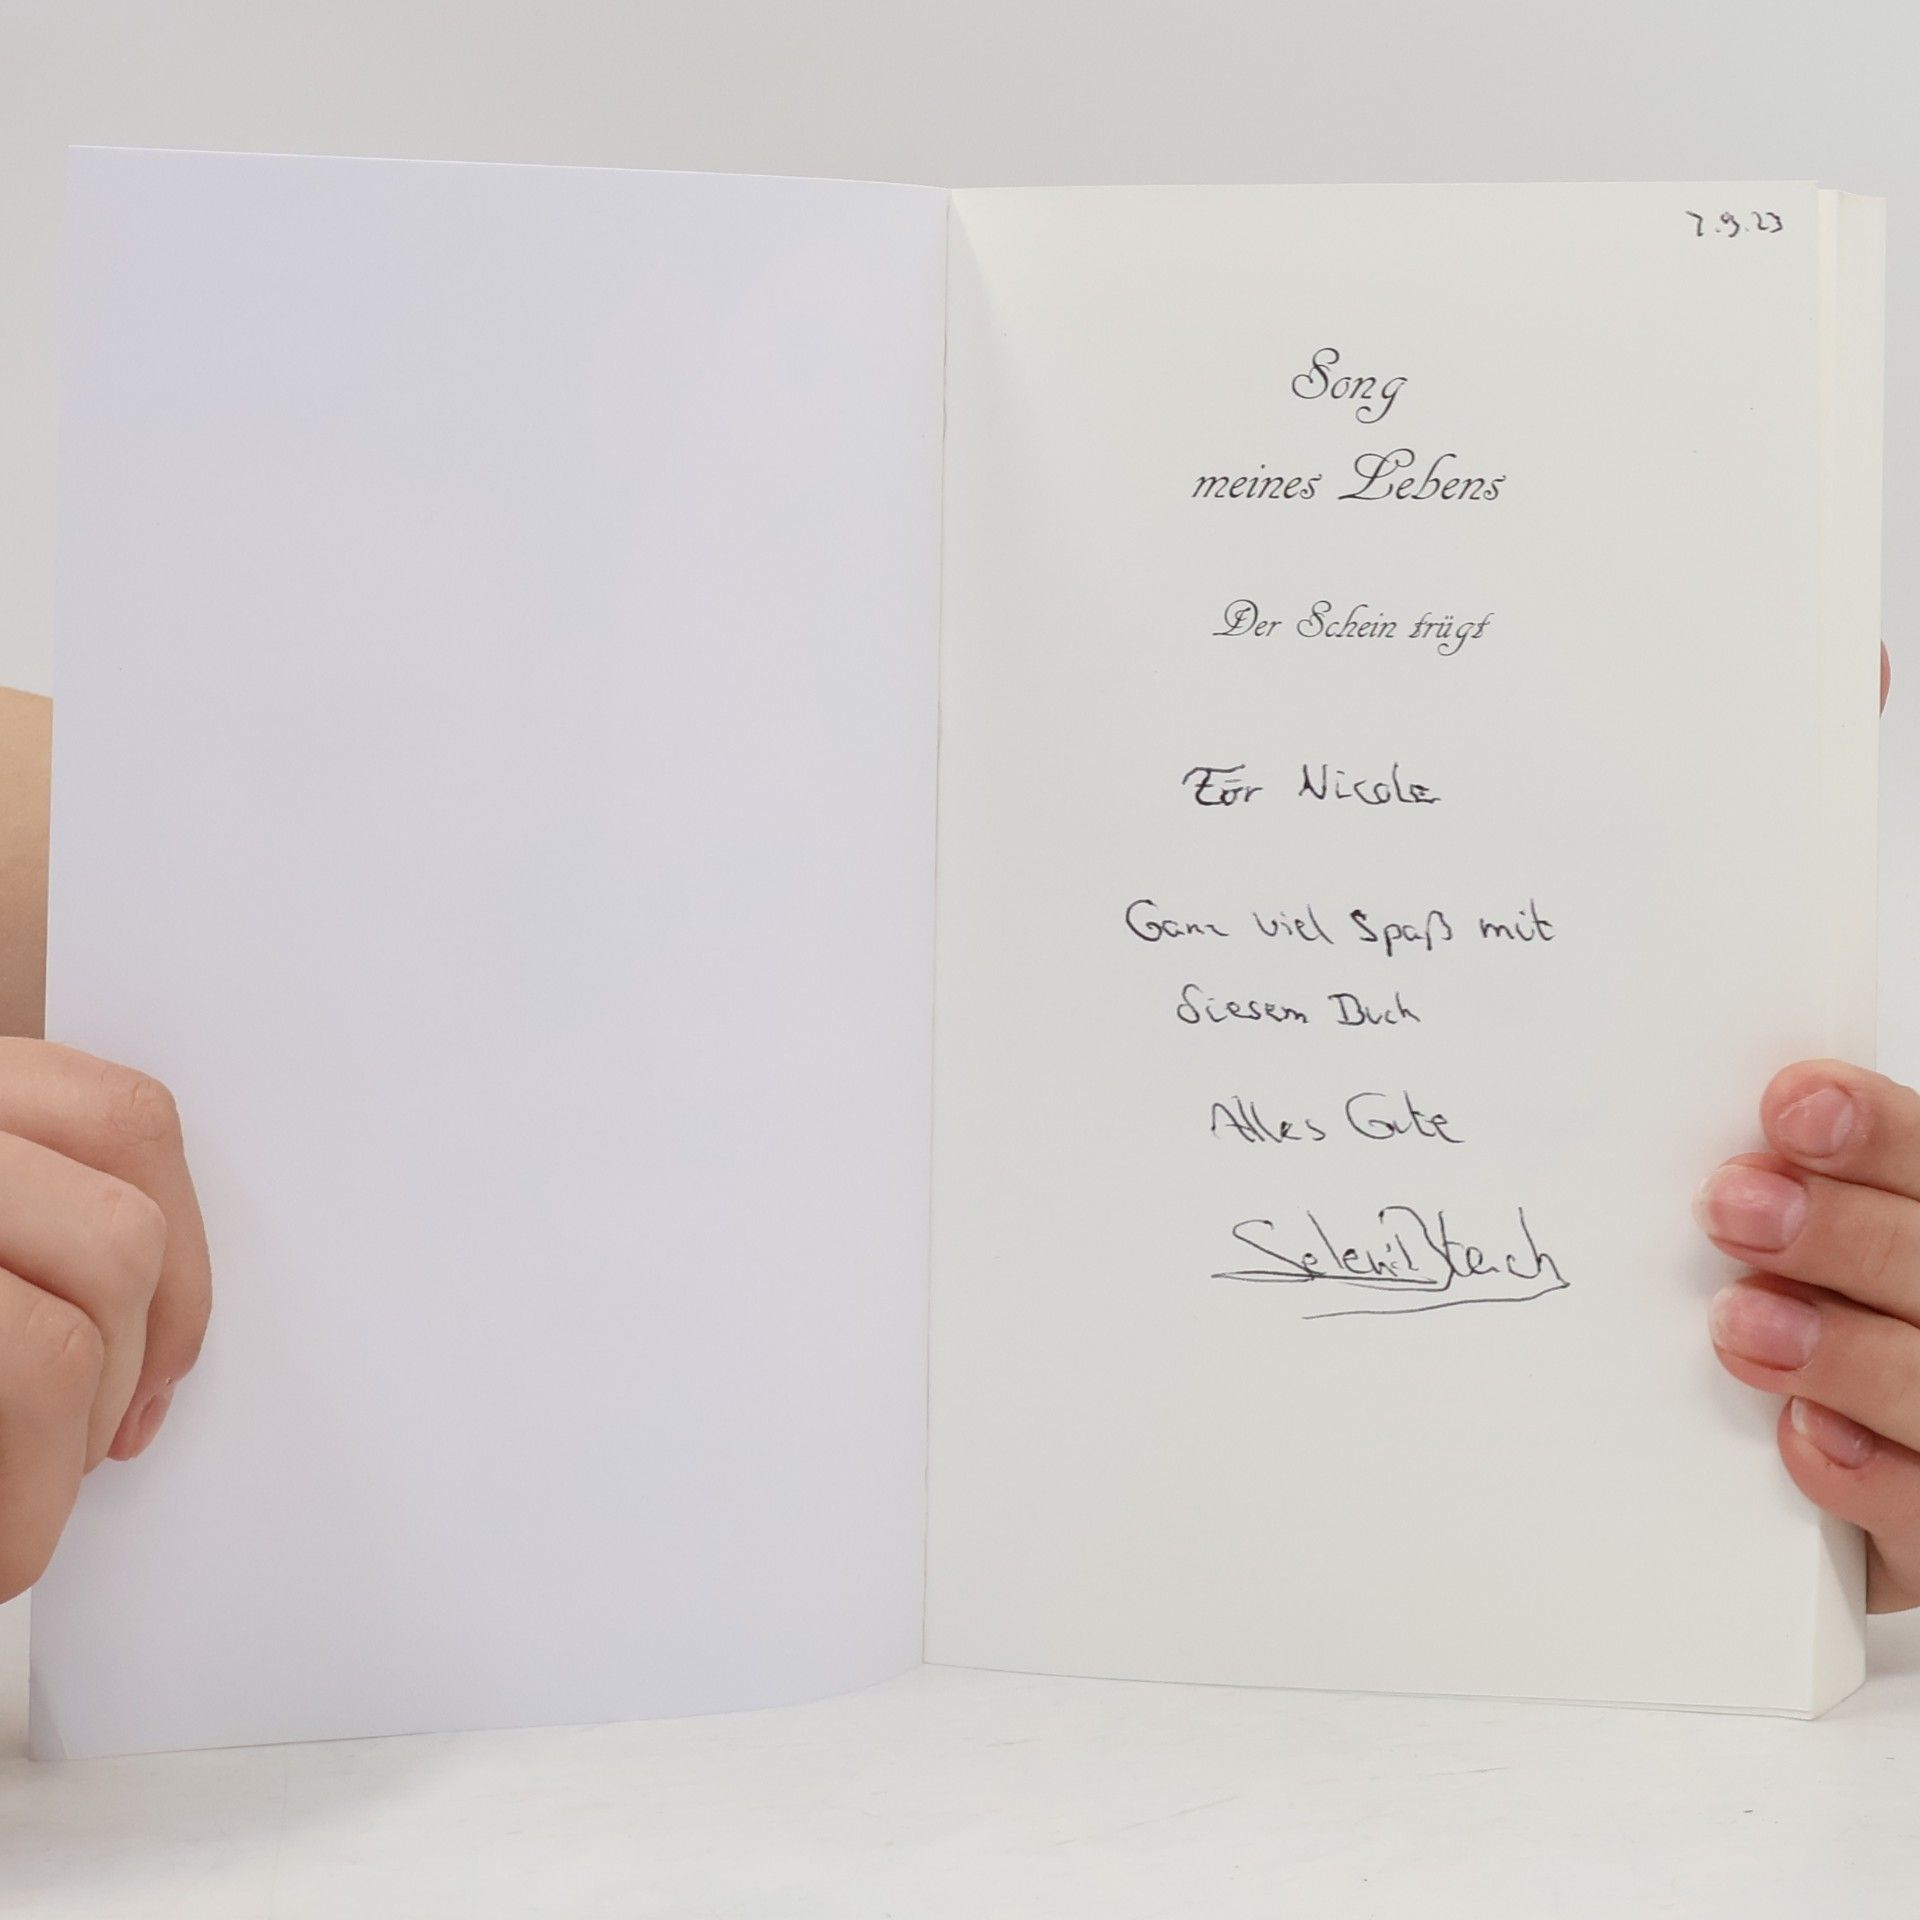 7.9.23
Song
meines Lebens
Der Schein trügt
Für Nicole
Ganz viel Spaß mit
diesem Buch
Alles Gute